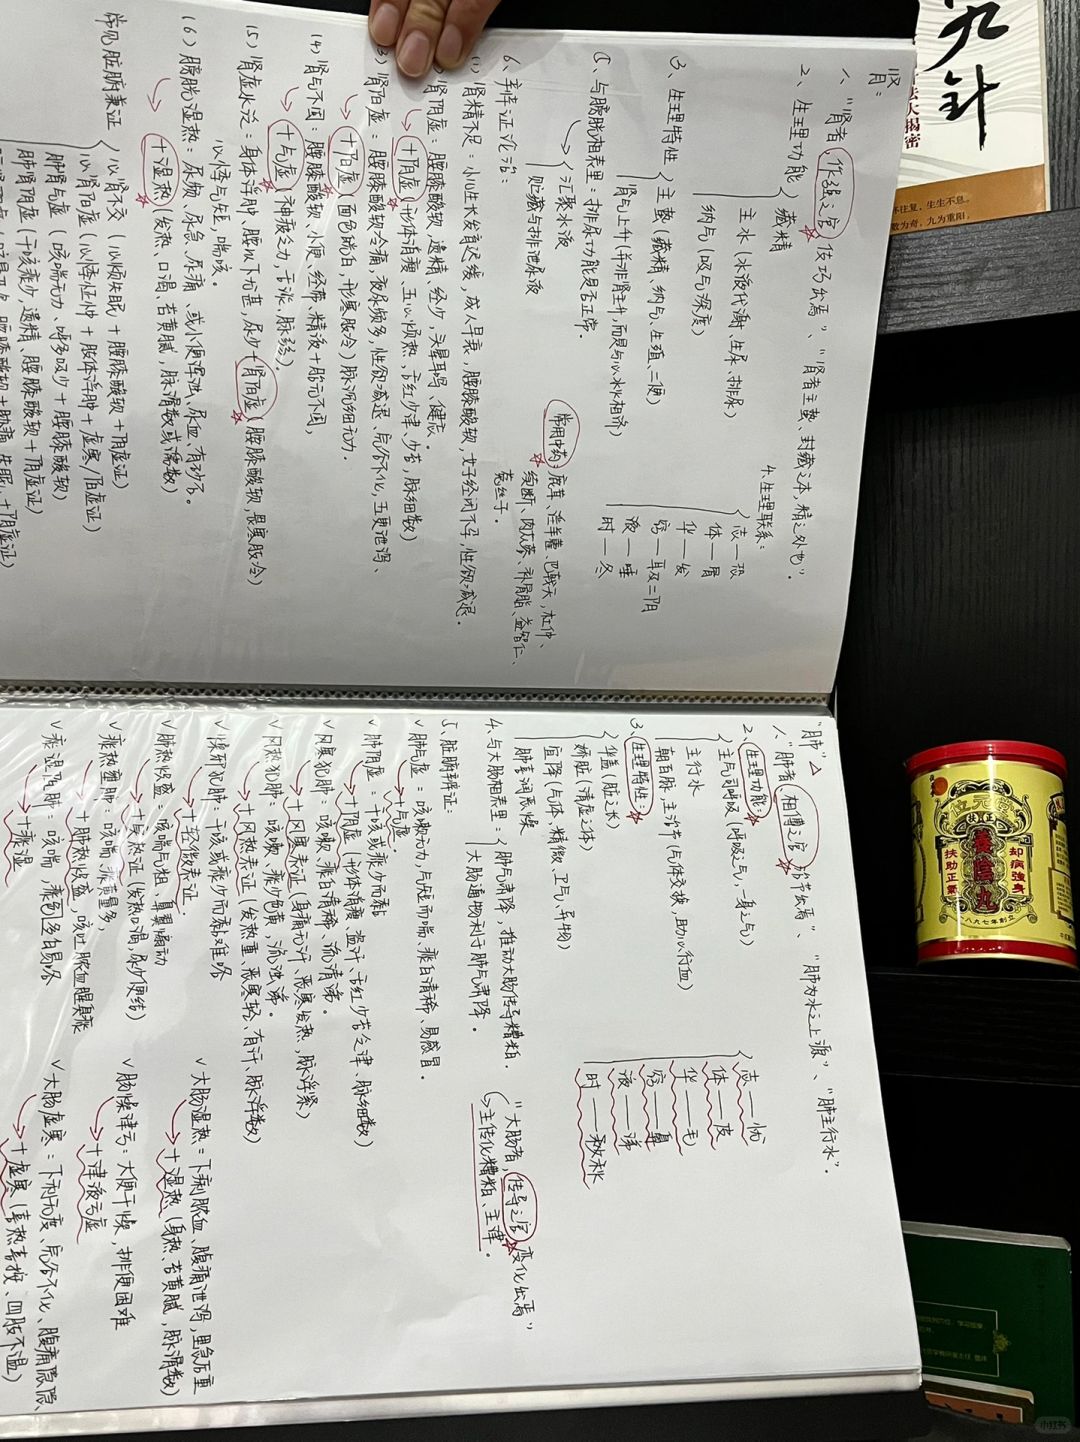 肾：
1、"肾者，作强之官，伎巧出焉"、"肾者主蛰，封藏之本，精之处也"。
2、生理功能
藏精
主水（水液代谢，生尿、排尿）
纳气（吸气深度）
3、生理特性
主蛰（藏精、纳气、生殖、二便）
肾气上升（并非肾主升，而是与心水火相济）
4、生理联系：
志—恐
体—骨
华—发
窍—耳及二阴
液—唾
时—冬
5、与膀胱相表里：排尿功能是否正常。
汇聚水液
贮藏与排泄尿液
常用中药：鹿茸、淫羊藿、巴戟天，杜仲、
续断、肉苁蓉、补骨脂、益智仁、
菟丝子。
6、辨证论治：
(1) 肾精不足：小儿生长发育迟缓，成人早衰，腰膝酸软，女子经闭不孕，性欲减退。
肾阴虚：腰膝酸软，遗精、经少，头晕耳鸣、健忘。
十阴虚（形体消瘦、五心烦热，舌红少津、少苔，脉细数）
3) 肾阳虚：腰膝酸软冷痛，夜尿频多，性欲减退、完谷不化，五更泄泻、
十阳虚（面色㿠白，形寒肢冷）脉沉细无力.
(4) 肾气不固：腰膝酸软，小便、经带、精液＋胎元不固，
十气虚（神疲乏力，舌淡，脉弱）.
(5) 肾虚水泛：身体浮肿，腰以下尤甚，尿少＋肾阳虚（腰膝酸软，畏寒肢冷）
心悸气短，喘咳.
(6) 膀胱湿热：尿频、尿急、尿痛、或小便浑浊、尿血、有砂石。
十湿热（发热、口渴、苔黄腻，脉滑数或濡数）
常见脏腑兼证
心肾不交（心烦失眠＋腰膝酸软＋阴虚证）
心肾阳虚（心悸怔忡＋肢体浮肿＋虚寒/阳虚证）
肺肾气虚（咳喘无力、呼多吸少＋腰膝酸软）
肺肾阴虚（干咳痰少，遗精、腰膝酸软＋阴虚证）
"肺"△
1、"肺者，相傅之官，治节出焉"、"肺为水之上源"、"肺主行水".
2、生理功能：
主气司呼吸（呼吸之气，一身之气）
主行水
朝百脉，主治节（气体交换，助心行血）
3、生理特性：
华盖（脏之长）
娇脏（清虚之体）
宣降（气体，精微、卫气，异物）
肺喜润恶燥
志——忧
体——皮
华——毛
窍——鼻
液——涕
时——秋
4、与大肠相表里：
肺气肃降，推动大肠传导糟粕.
大肠通畅利于肺气肃降.
"大肠者，传导之官，变化出焉"
主传化糟粕、主津.
5、脏腑辨证：
√肺气虚：咳嗽无力、气短而喘、痰白清稀、易感冒.
十气虚.
√肺阴虚：干咳或痰少而黏
十阴虚（形体消瘦、盗汗、舌红少苔乏津、脉细数）
√风寒犯肺：咳嗽、痰白清稀，流清涕.
十风寒表证（身痛无汗、恶寒发热，脉浮紧）
√风热犯肺：咳嗽，痰少色黄，流浊涕。
十风热表证（发热重，恶寒轻、有汗、脉浮数）
√燥邪犯肺：干咳或痰少而黏难咯
十轻微表证.
√肺热炽盛：咳喘气粗，鼻翼煽动
十实热证（发热口渴，尿少便结）
√痰热壅肺：咳喘，痰黄量多，
十肺热炽盛，咳吐脓血腥臭痰
√痰湿阻肺：咳喘，痰色多白易咯
十痰湿
√大肠湿热：下痢脓血、腹痛泄泻，里急后重
十湿热（身热、苔黄腻，脉滑数）
√肠燥津亏：大便干燥，排便困难
十津液亏虚
√大肠虚寒：下利无度、完谷不化、腹痛隐隐、
十虚寒（喜热喜按、四肢不温）
九针
天揭密
往复，生生不息.
数为奇，九为重阳，
位元堂
扶正
養陰丸
扶助正氣
却病強身
一八九七年創立
小红书